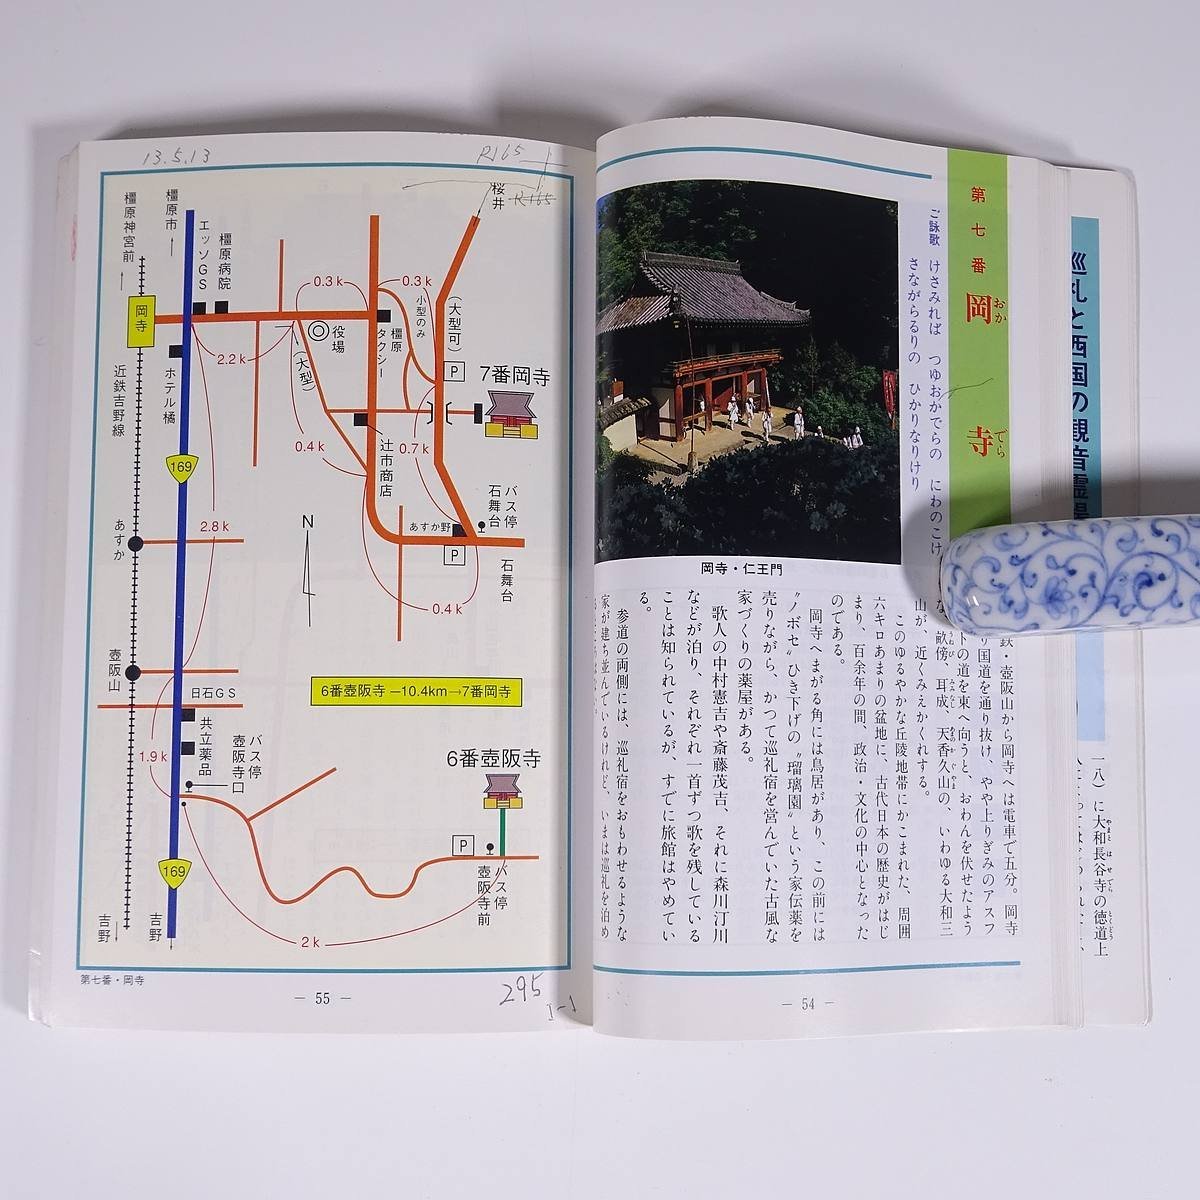 巡礼と西国の観音霊場
一八）に大和長谷寺の徳道上
やまと はせでら とくどう
第七番
岡寺
おか でら
ご詠歌 けさみれば つゆおかでらの にわのこけ
さながらるりの ひかりなりけり
岡寺・仁王門
鉄・壺阪山から岡寺へは電車で五分。岡寺
り国道を通り抜け、やや上りぎみのアスフ
トの道を東へ向うと、おわんを伏せたよう
な畝傍、耳成、天香久山の、いわゆる大和三
山が、近くみえかくれする。
このゆるやかな丘陵地帯にかこまれた、周囲
六キロあまりの盆地に、古代日本の歴史がはじ
まり、百余年の間、政治・文化の中心となった
のである。
岡寺へまがる角には鳥居があり、この前には
〝ノボセ〟ひき下げの〝瑠璃園〟という家伝薬を
売りながら、かつて巡礼宿を営んでいた古風な
家づくりの薬屋がある。
歌人の中村憲吉や斎藤茂吉、それに森川汀川
などが泊り、それぞれ一首ずつ歌を残している
ことは知られているが、すでに旅館はやめてい
る。
参道の両側には、巡礼宿をおもわせるような
家が建ち並んでいるけれど、いまは巡礼を泊め
― 54 ―
13.5.13
R165
R165
桜井
橿原市
橿原神宮前
エッソGS
橿原病院
岡寺
0.3k
0.3k
小型のみ
（大型可）
役場
橿原タクシー
2.2k
（大型）
P
7番岡寺
近鉄吉野線
ホテル橘
0.4k
0.7k
辻市商店
169
バス停
石舞台
2.8k
あすか
N
あすか野
P
石舞台
0.4k
壺阪山
日石GS
6番壺阪寺―10.4km→7番岡寺
共立薬品
バス停
壺阪寺口
1.9k
6番壺阪寺
P
169
バス停
壺阪寺前
吉野
吉野
2k
第七番・岡寺
― 55 ―
295